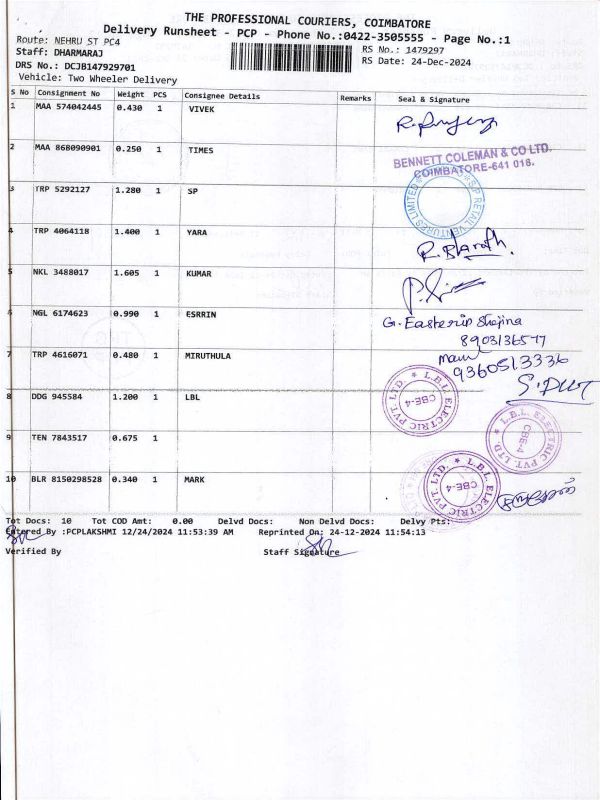 THE PROFESSIONAL COURIERS, COIMBATORE
Delivery Runsheet - PCP - Phone No.:0422-3505555 - Page No.:1
Route: NEHRU ST PC4
RS No.: 1479297
Staff: DHARMARAJ
RS Date: 24-Dec-2024
DRS No.: DCJB147929701
Vehicle: Two Wheeler Delivery
S No Consignment No Weight PCS Consignee Details Remarks Seal & Signature
1 MAA 574042445 0.430 1 VIVEK
2 MAA 868090901 0.250 1 TIMES
BENNETT COLEMAN & CO LTD.
COIMBATORE-641 018.
3 TRP 5292127 1.280 1 SP
S.P RETAIL VENTURES LIMITED
4 TRP 4064118 1.400 1 YARA
R. Bharath.
5 NKL 3488017 1.605 1 KUMAR
6 NGL 6174623 0.990 1 ESRRIN
G. Easterin Shajina
8903136577
7 TRP 4616071 0.480 1 MIRUTHULA
9360513336
8 DDG 945584 1.200 1 LBL
L.B.L. ELECTRIC PVT. LTD. CBE-4
9 TEN 7843517 0.675 1
L.B.L. ELECTRIC PVT. LTD. CBE-4
10 BLR 8150298528 0.340 1 MARK
L.B.L. ELECTRIC PVT. LTD. CBE-4
Tot Docs: 10 Tot COD Amt: 0.00 Delvd Docs: Non Delvd Docs: Delvy Pts:
Entered By :PCPLAKSHMI 12/24/2024 11:53:39 AM Reprinted On: 24-12-2024 11:54:13
Verified By Staff Signature